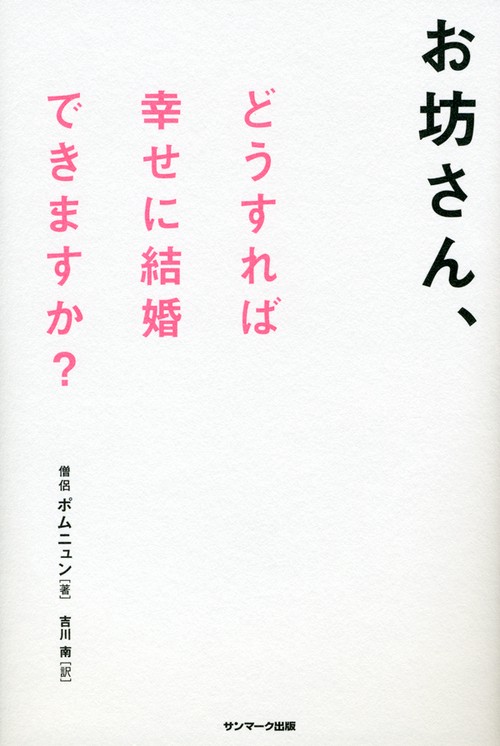 お坊さん、
どうすれば
幸せに結婚
できますか?
僧侶 ポムニュン[著] 吉川 南[訳]
サンマーク出版